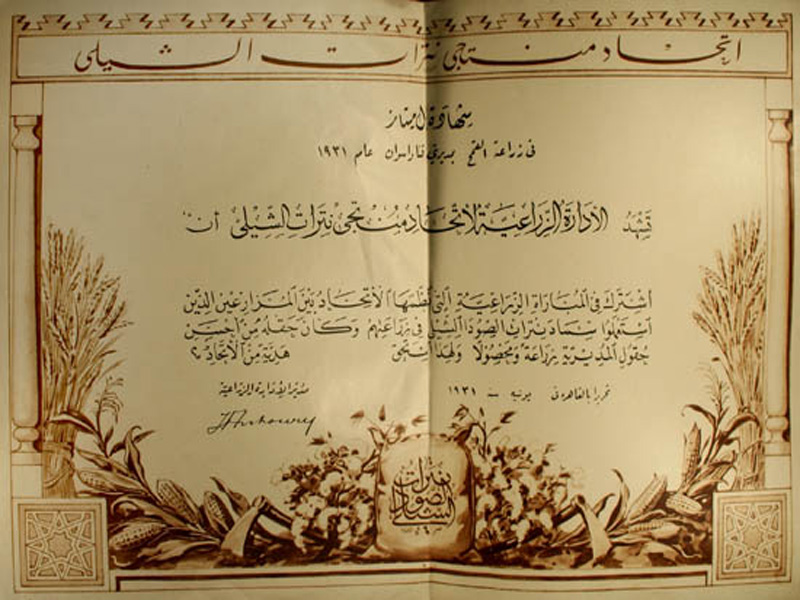 اتحاد منتجى نترات الشيلى
شهادة امتياز
فى زراعة القمح بمديرتى عام ١٩٣١
تشهد الادارة الزراعية لاتحاد منتجى نترات الشيلى أن
اشترك فى المباراة الزراعية التى نظمها الاتحاد بين المزارعين الذين
استعملوا سماد نترات الصودا الشيلى فى زراعتهم وكان حقله من أحسن
حقول المديرية زراعة ومحصولا ولهذا استحق هدية من الاتحاد
تحريرا بالقاهرة فى يونيه سنة ١٩٣١
مدير الادارة الزراعية
نترات
الصودا
الشيلى